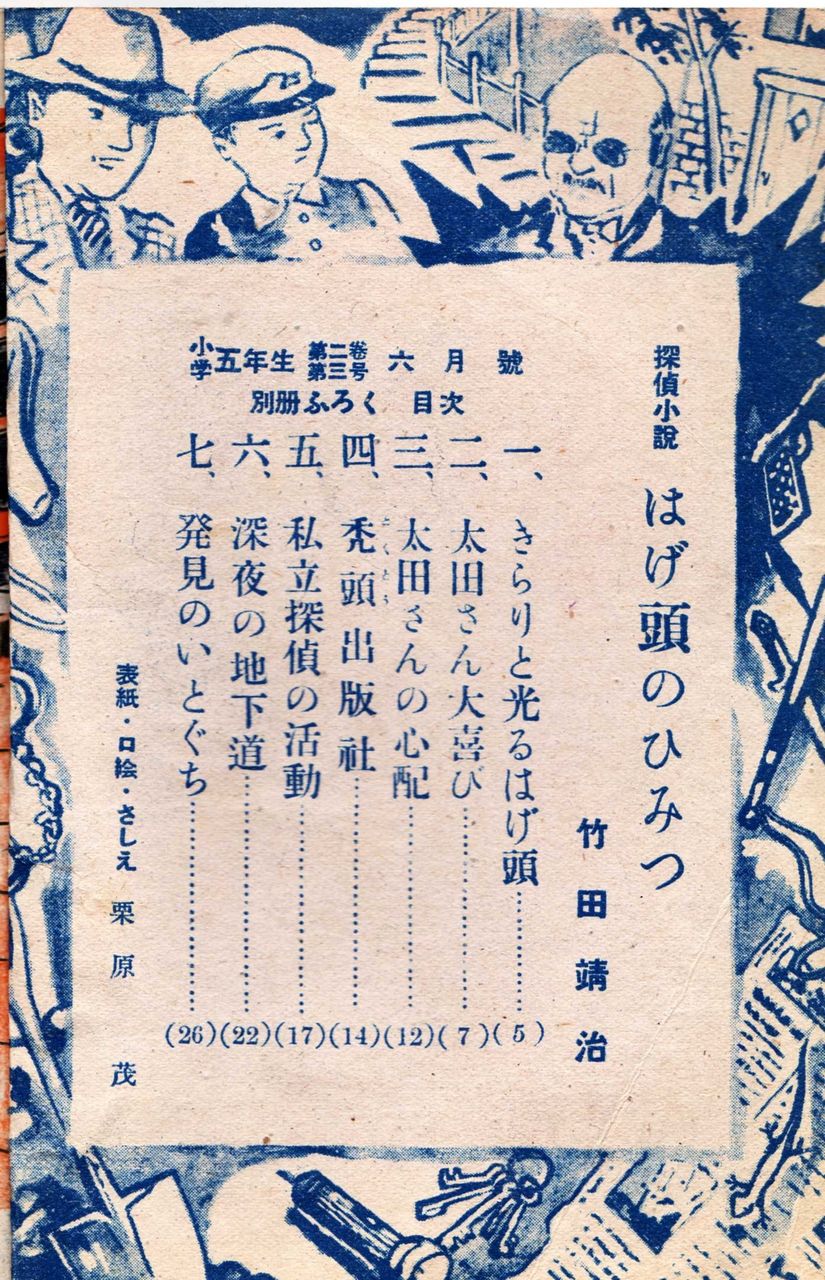 探偵小說 はげ頭のひみつ
竹田靖治
小学五年生 第二卷第三号 六月號
別册ふろく 目次
一、きらりと光るはげ頭…………(5)
二、太田さん大喜び…………(7)
三、太田さんの心配…………(12)
四、禿頭出版社…………(14)
とくとう
五、私立探偵の活動…………(17)
六、深夜の地下道…………(22)
七、発見のいとぐち…………(26)
表紙・口絵・さしえ 栗原 茂